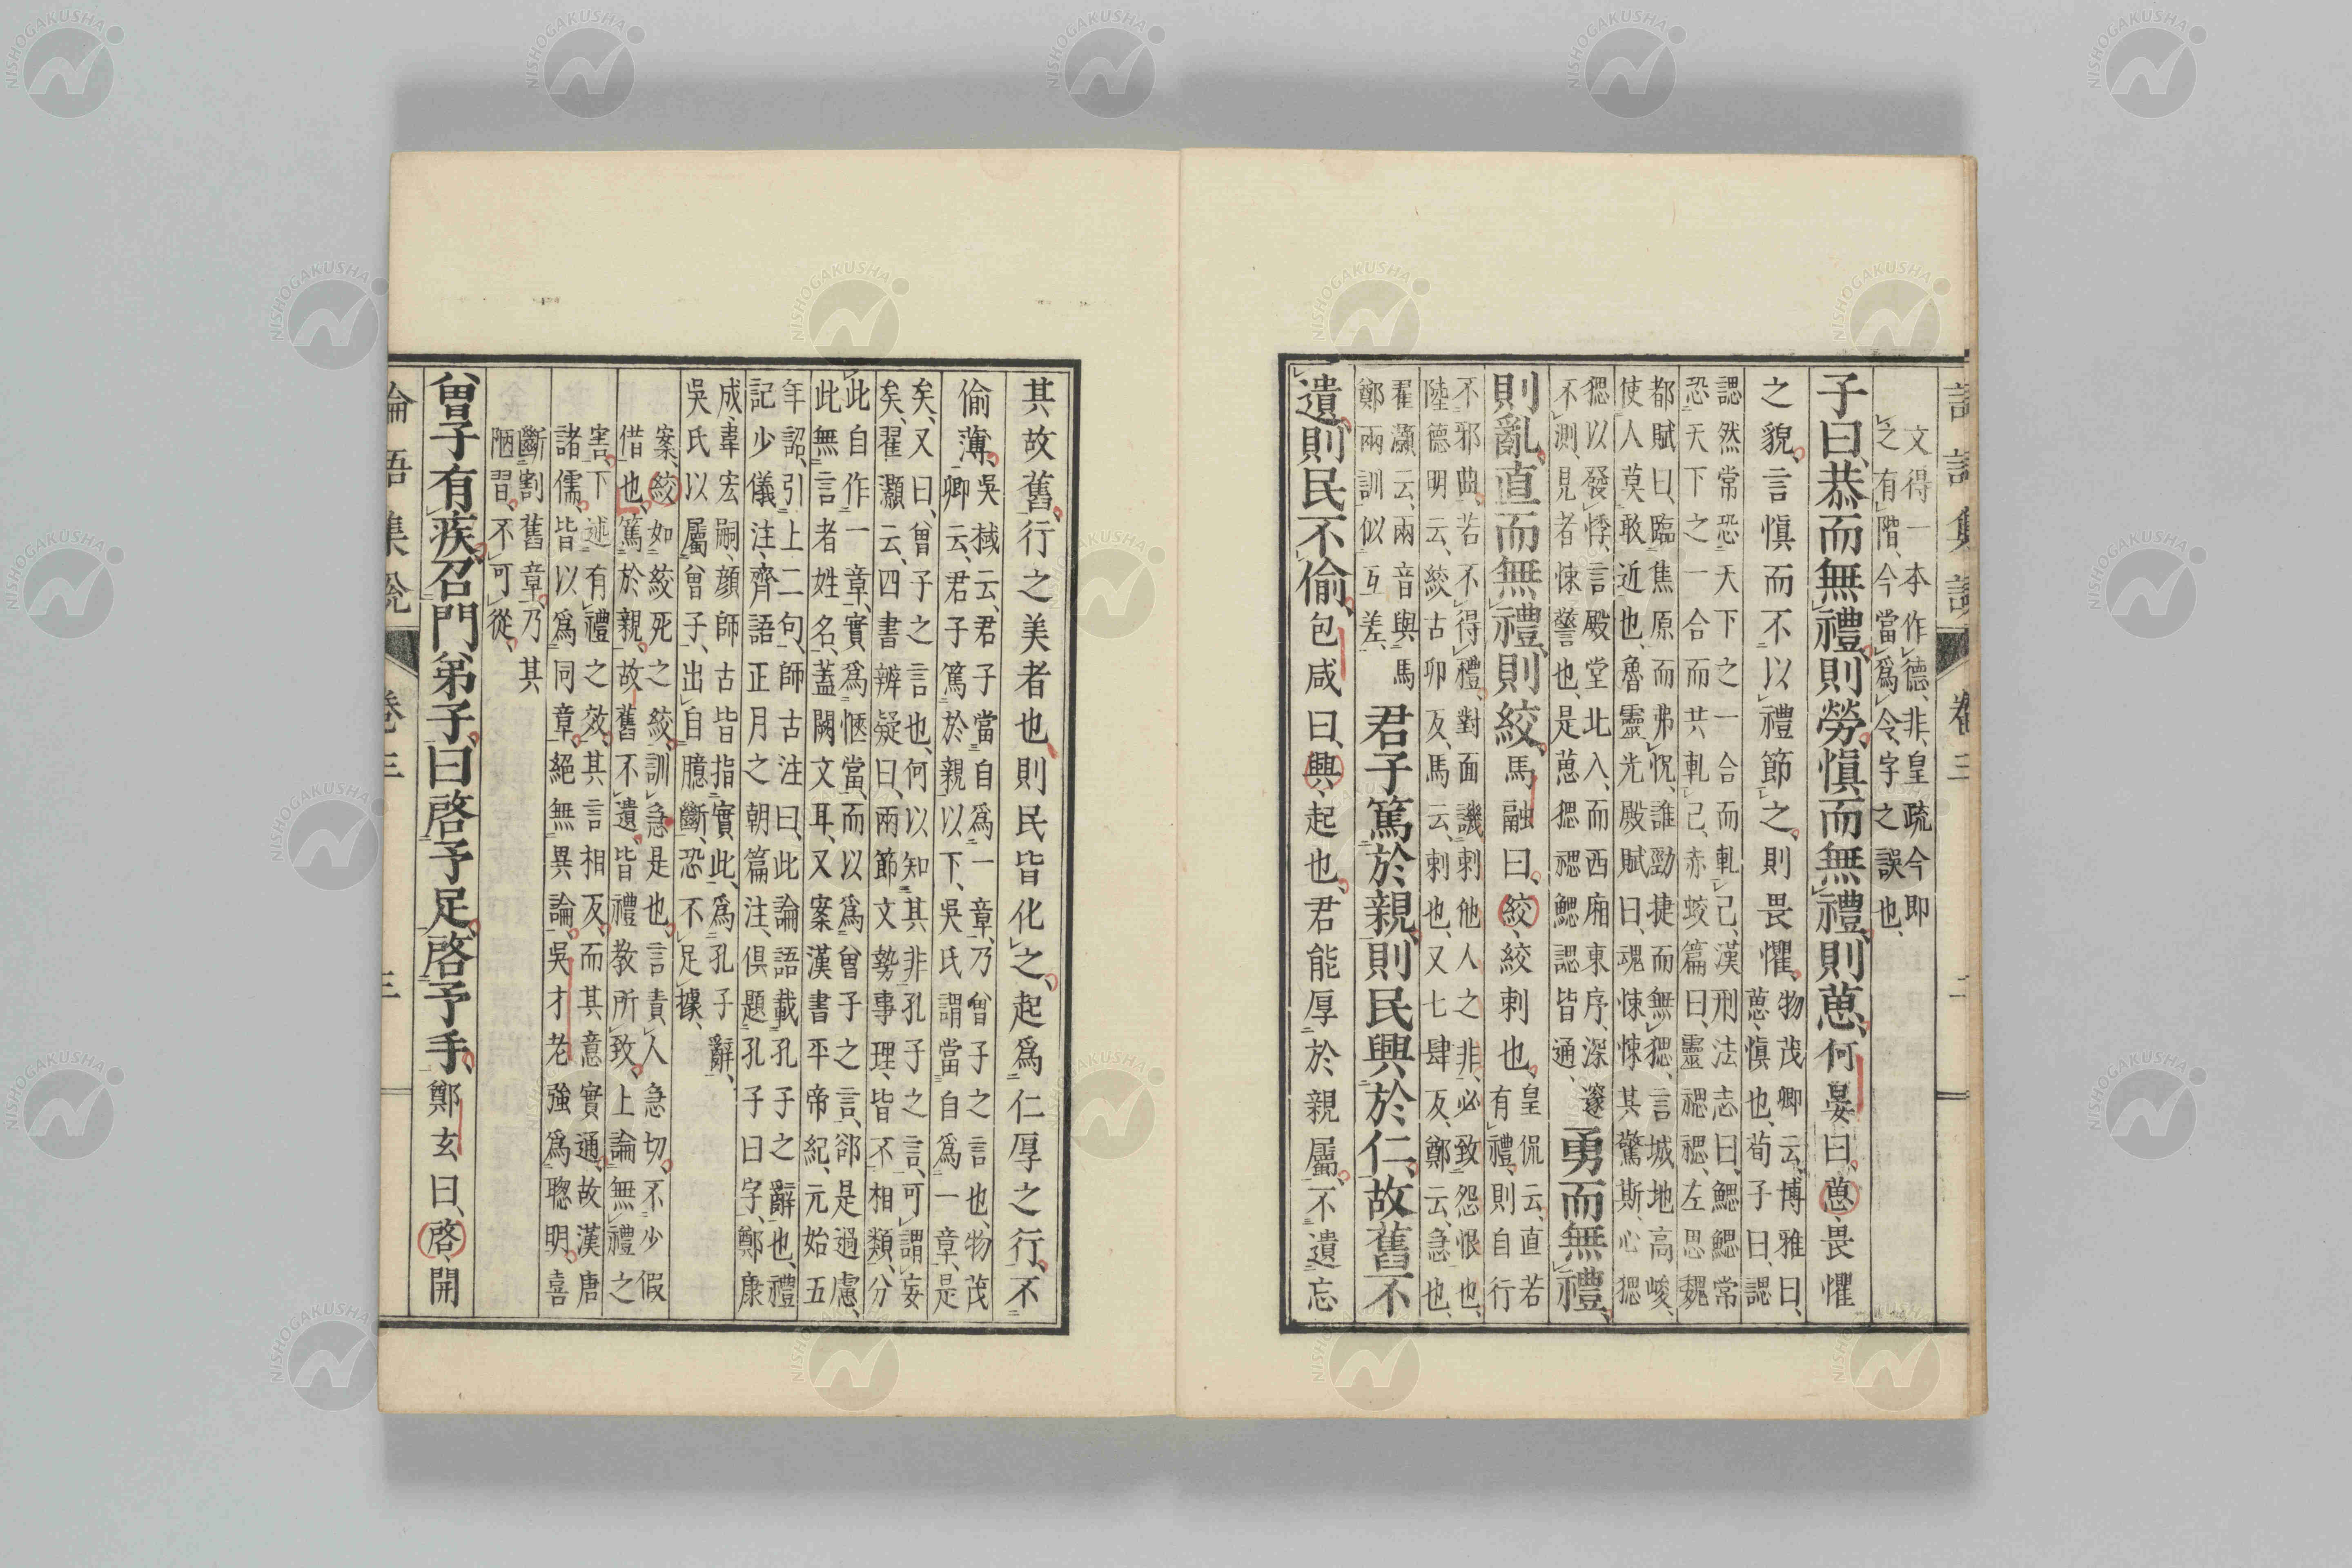 文得一本作德、非、皇疏今即
之有階、今當爲令、字之誤也、
子曰、恭而無禮、則勞、愼而無禮、則葸、何晏曰、葸、畏懼
之貌、言愼而不以禮節之、則畏懼、
物茂卿云、博雅曰、
葸、愼也、荀子曰、諰
諰然常恐天下之一合而軋己、漢刑法志曰、鰓鰓常
恐天下之一合而共軋己、赤蛟篇曰、靈禗禗、左思魏
都賦曰、臨焦原而弗怳、誰勁捷而無猲、言城地高峻、
使人莫敢近也、魯靈光殿賦曰、魂悚悚其驚斯、心猲
猲以發悸、言殿堂北入、而西廂東序、深邃
不測、見者悚聳也、是葸猲禗鰓諰皆通、
勇而無禮、
則亂、直而無禮、則絞、馬融曰、絞、絞刺也、
皇侃云、直若
有禮、則自行
不邪曲、若不得禮、對面譏刺他人之非、必致怨恨也、
陸德明云、絞古卯反、馬云、刺也、又七肆反、鄭云、急也、
翟灝云、兩音與馬
鄭兩訓似互差、
君子篤於親、則民興於仁、故舊不
遺、則民不偷、包咸曰、興、起也、君能厚於親屬、不遺忘
其故舊、行之美者也、則民皆化之、起爲仁厚之行、不
偷薄、
吳棫云、君子當自爲一章、乃曾子之言也、物茂
卿云、君子篤於親以下、吳氏謂當自爲一章、是
矣、又曰、曾子之言也、何以知其非孔子之言、可謂妄
矣、翟灝云、四書辨疑曰、兩節文勢事理、皆不相類、分
此自作一章、實爲愜當、而以爲曾子之言、卻是過慮、
此無言者姓名、蓋闕文耳、又案漢書平帝紀、元始五
年詔、引上二句、師古注曰、此論語載孔子之辭也、禮
記少儀注、齊語正月之朝篇注、俱題孔子曰字、鄭康
成、韋宏嗣、顏師古皆指實此、爲孔子辭、
吳氏以屬曾子、出自臆斷、恐不足據、
案、絞如絞死之絞、訓急是也、言責人急切、不少假
借也、篤於親、故舊不遺、皆禮敎所致、上論無禮之
害、下述有禮之效、其言相反、而其意實通、故漢唐
諸儒、皆以爲同章、絕無異論、吳才老強爲聰明、喜
斷割舊章、乃其
陋習、不可從、
曾子有疾、召門弟子、曰、啓予足、啓予手、鄭玄曰、啓、開
論語集說
卷三
三